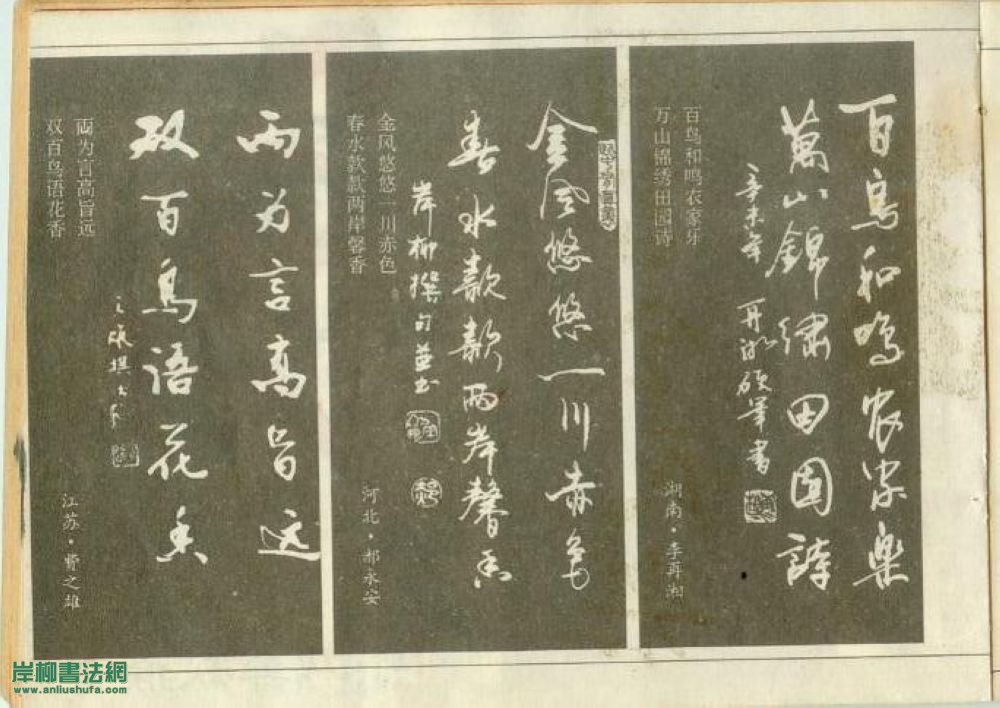 百鸟和鸣农家乐
萬山錦繡田园詩
辛未年 再湘硬筆書
百鸟和鸣农家乐
万山锦绣田园诗
湖南·李再湘
金风悠悠一川赤色
春水款款两岸馨香
岸柳撰句並书
金风悠悠一川赤色
春水款款两岸馨香
河北·郝永安
两为言高旨远
双百鸟语花香
之雄撰
両为言高旨远
双百鸟语花香
江苏·费之雄
岸柳書法網
www.anliushufa.com